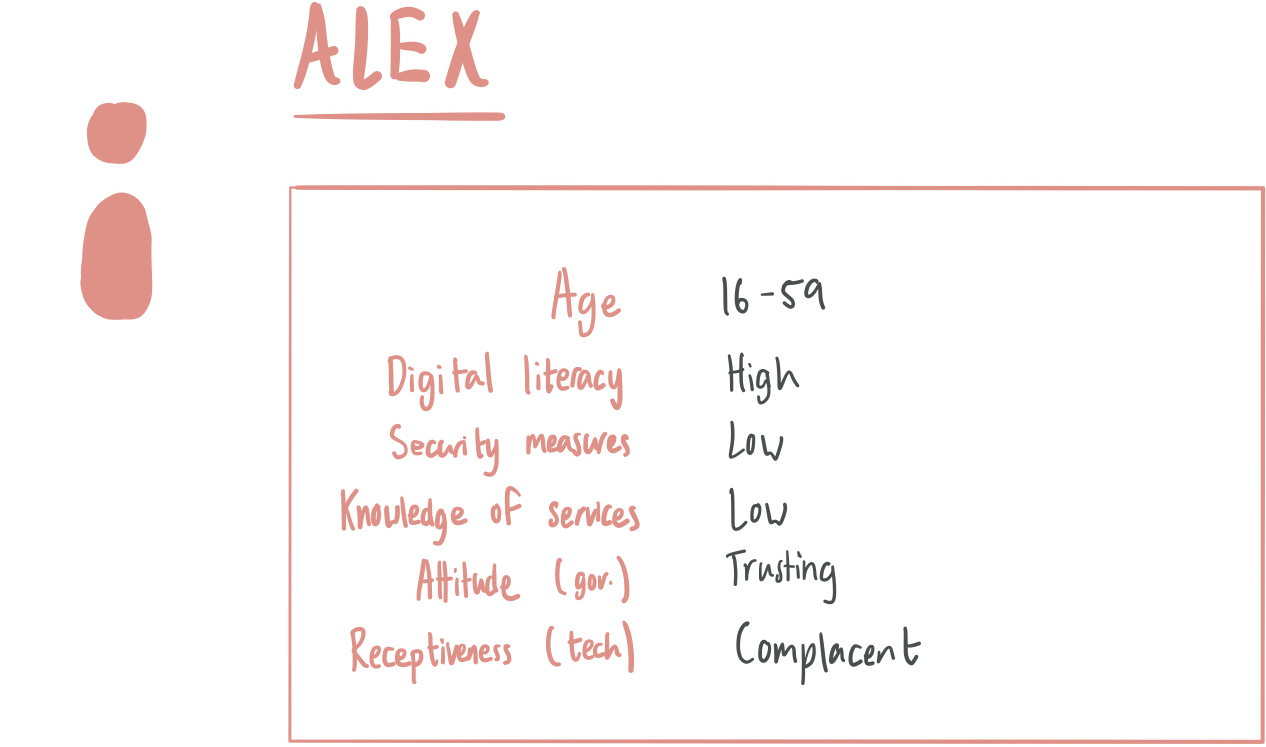 ALEX
Age 16-59
Digital literacy High
Security measures Low
Knowledge of services Low
Attitude (gov.) Trusting
Receptiveness (tech) Complacent